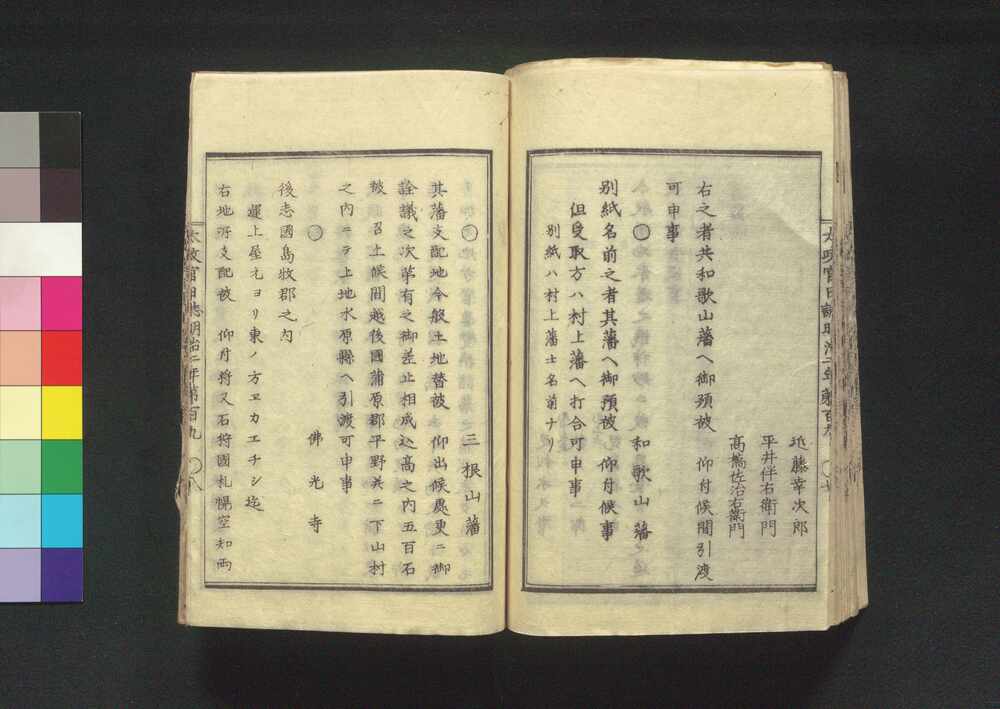 近藤幸次郎
平井伴右衛門
高橋佐治右衛門
右之者共和歌山藩ヘ御預被　仰付候間引渡
可申事
○　和歌山藩
別紙名前之者其藩ヘ御預被　仰付候事
但受取方ハ村上藩ヘ打合可申事
別紙ハ村上藩士名前ナリ
○　三根山藩
其藩支配地今般土地替被　仰出候處更ニ御
詮議之次第有之御差止相成込高之内五百石
被　召上候間越後國蒲原郡平野共ニ下山村
之内ニテ上地水原縣ヘ引渡可申事
○　佛光寺
後志國島牧郡之内
運上屋元ヨリ東ノ方ヱカエチシ迄
右地所支配被　仰付将又石狩國札幌空知両
太政官日誌明治二年第百九　○八